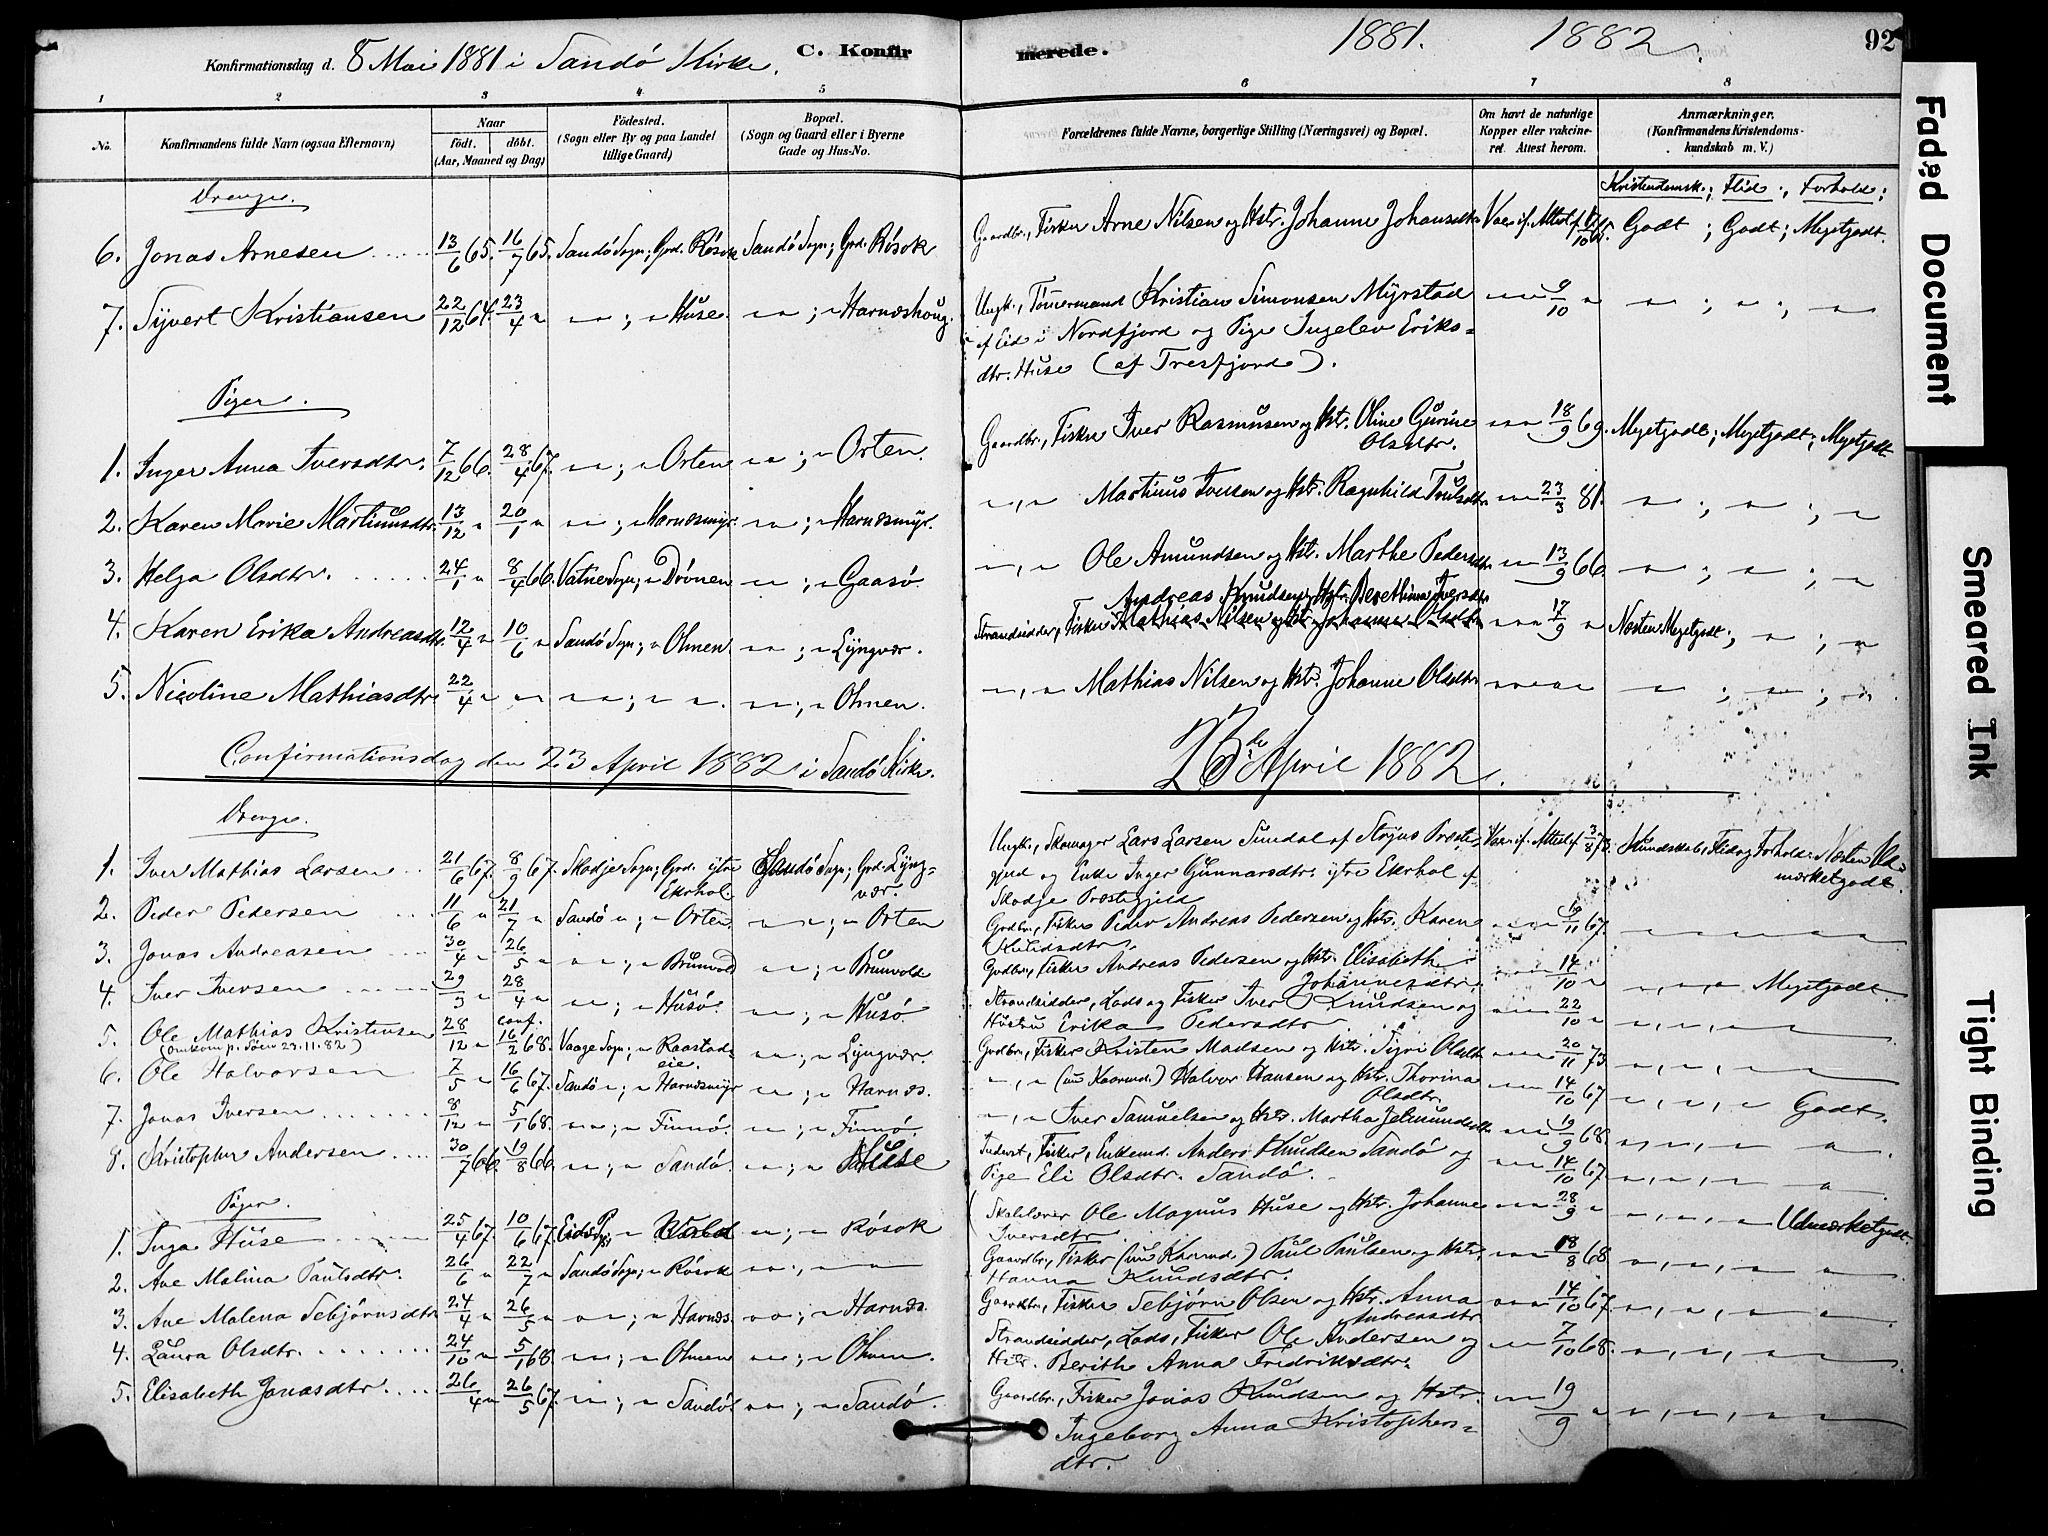 Konfirmationsdag d. 8 Mai 1881 i Sandø Kirke. C. Konfir
merede. 1881. 1882. 92
1 2 3 4 5 6 7 8
No. Konfirmandens fulde Navn (ogsaa Efternavn) Naar födt. döbt. (Aar, Maaned og Dag) Födested. (Sogn eller By og paa Landet tillige Gaard) Bopæl. (Sogn og Gaard eller i Byerne Gade og Hus-No.
Forældrenes fulde Navne, borgerlige Stilling (Næringsvei) og Bopæl. Om havt de naturlige Kopper eller vakcineret. Attest herom. Anmærkninger. (Konfirmandens Kristendomskundskab m. V.)
Drenge. Kristendomsk.; Flid.; Forhold;
6. Jonas Arnesen 13/6 65. 16/7 65. Sandø Sogn; Grd. Røsok Sandø Sogn; Grd. Røsok Gaardbr., Fisker Arne Nilsen og Hstr. Johanne Johansdtr. Vac. if. Attest f. Godt; Godt; Megetgodt.
7. Syvert Kristiansen 22/12 64. 23/4 " " "; " Huse. " "; " Harnæshoug. Ungk., Tømmermand Kristian Simonsen Myrstad " " 9/10 " " ; " ; "
af Eid i Nordfjord og Pige Ingelev Eriks=
dtr. Huse (af Tresfjord).
Piger.
1. Inger Anna Iversdtr. 7/12 66. 28/4 67. " "; " Orten " "; " Orten. Gaardbr., Fisker Iver Rasmusen og Hstr. Oline Gurine Olsdtr. " " 18/9 69. Megetgodt; Megetgodt; Megetgodt.
2. Karen Marie Martinusdtr. 13/12 " 20/1 " " "; " Harnæsmyr. " "; " Harnæsmyr. " , " Martinus Iversen og Hstr. Ragnhild " " 23/3 81. " ; " ; "
3. Helga Olsdtr. 24/1 " 8/4 66. Vatne Sogn; " Drønen " "; " Gaasø. " , " Ole Amundsen og Hstr. Marthe Pedersdtr. " " 13/9 66. " ; " ; "
Andreas Knudsen og Hstr. Berethanna Iversdtr.
4. Karen Erika Andreasdtr. 12/4 " 10/6 " Sandø Sogn; " Ohnen " "; " Lyngvær. Strandsidder, Fisker Mathias Nilsen og Hstr. Johanne Olsdtr. " " 17/9 " Næsten Megetgodt; " ; "
5. Nicoline Mathiasdtr. 22/4 " " " " "; " " " "; " Ohnen. " , " Mathias Nilsen og Hstr. Johanne Olsdtr. " " " " " ; " ; "
Confirmationsdag den 23 April 1882 i Sandø Kirke. 23de April 1882.
Drenge.
1. Iver Mathias Larsen 21/6 67. 8/9 67. Skodje Sogn; Grd. ytre Ekrhol. Sandø Sogn; Grd. Lyngvær. Ungk., Skomager Lars Larsen Sundal af Stryns Præste= Vac. if. Attest f. 3/8 73. Kundskab, Flid og Forhold: Næsten Udmærketgodt.
gjeld og Enke Inger Gunnarsdtr. ytre Ekrhol af
Skodje Præstegjeld
2. Peder Pedersen 11/6 " 21/7 " Sandø "; " Orten. " "; " Orten Grdbr., Fisker Peder Andreas Pedersen og Hstr. Karen Knudsdtr. " " 19/11 67. " " " "
3. Jonas Andreasen 30/4 " 26/5 " " "; " Brunvold " "; " Brunvold Grdbr., Fisker Andreas Pedersen og Hstr. Elisabeth Johannesdtr. " " 14/10 " " , " , " Megetgodt.
4. Iver Iversen 29/3 " 28/4 " " "; " Husø. " "; " Husø. Strandsidder, Lods og Fisker Iver Knudsen og Hustru Erika Pedersdtr. " " 22/10 " " , " , " "
5. Ole Mathias Kristensen 28/12 " conf. 16/2 68. Vaage Sogn; " Raastadeie. " "; " Lyngvær Grdbr., Fisker Kristen Madsen og Hstr. Syri Olsdtr. " " 20/11 73 " , " , " "
(Omkom p. Søen 23.11.82)
6. Ole Halvorsen 7/5 " 16/6 67. Sandø "; " Harnæsmyr " "; " Harnæs. " , " (nu Kaarmd.) Halvor Hansen og Hstr. Thorina Olsdtr. " " 14/10 67 " , " , " Godt.
7. Jonas Iversen 8/12 " 5/1 68. " "; " Finnø. " "; " Finnø. " , " Iver Samuelsen og Hstr. Martha Jetmundsdtr. " " 19/9 68. " , " , " "
8. Kristopher Andersen 30/7 66. 19/8 66. " "; " Sandø. " "; " Huse Inderst, Fisker, Enkemd. Anders Knudsen Sandø og Pige Eli Olsdtr. Sandø. " " 14/10 67. " , " , " "
Piger.
1. Inga Huse 25/4 67. 10/6 67. " "; " Røsok Skolelærer Ole Magnus Huse og Hstr. Johanne Iversdtr. " " 28/9 " " , " , " Udmærketgodt.
2. Ane Malina Paulsdtr. 26/6 " 22/7 " Sandø Sogn; " Røsok " " ; " " Gaardbr., Fisker (nu Kaarmd.) Paul Paulsen og Hstr. Hanna Knudsdtr. " " 18/8 68. " , " , " "
3. Ane Malena Sebjørnsdtr. 24/4 " 26/5 " " "; " Harnæs. " "; " Harnæs. Gaardbr., Fisker Sebjørn Olsen og Hstr. Anna Andreasdtr. " " 14/10 67. " , " , " "
4. Laura Olsdtr. 24/10 " 5/1 68. " "; " Ohnen " "; " Ohnen. Strandsidder, Lods, Fisker Ole Andersen og Hstr. Berith Anna Fredriksdtr. " " 7/10 68. " , " , " "
5. Elisabeth Jonasdtr. 26/4 " 26/5 67. " "; " Sandø. " "; " Sandø. Gaardbr., Fisker Jonas Knudsen og Hstr. Ingeborg Anna Kristophersdtr. " " 19/9 " " , " , " "
Faded Document
Smeared Ink
Tight Binding